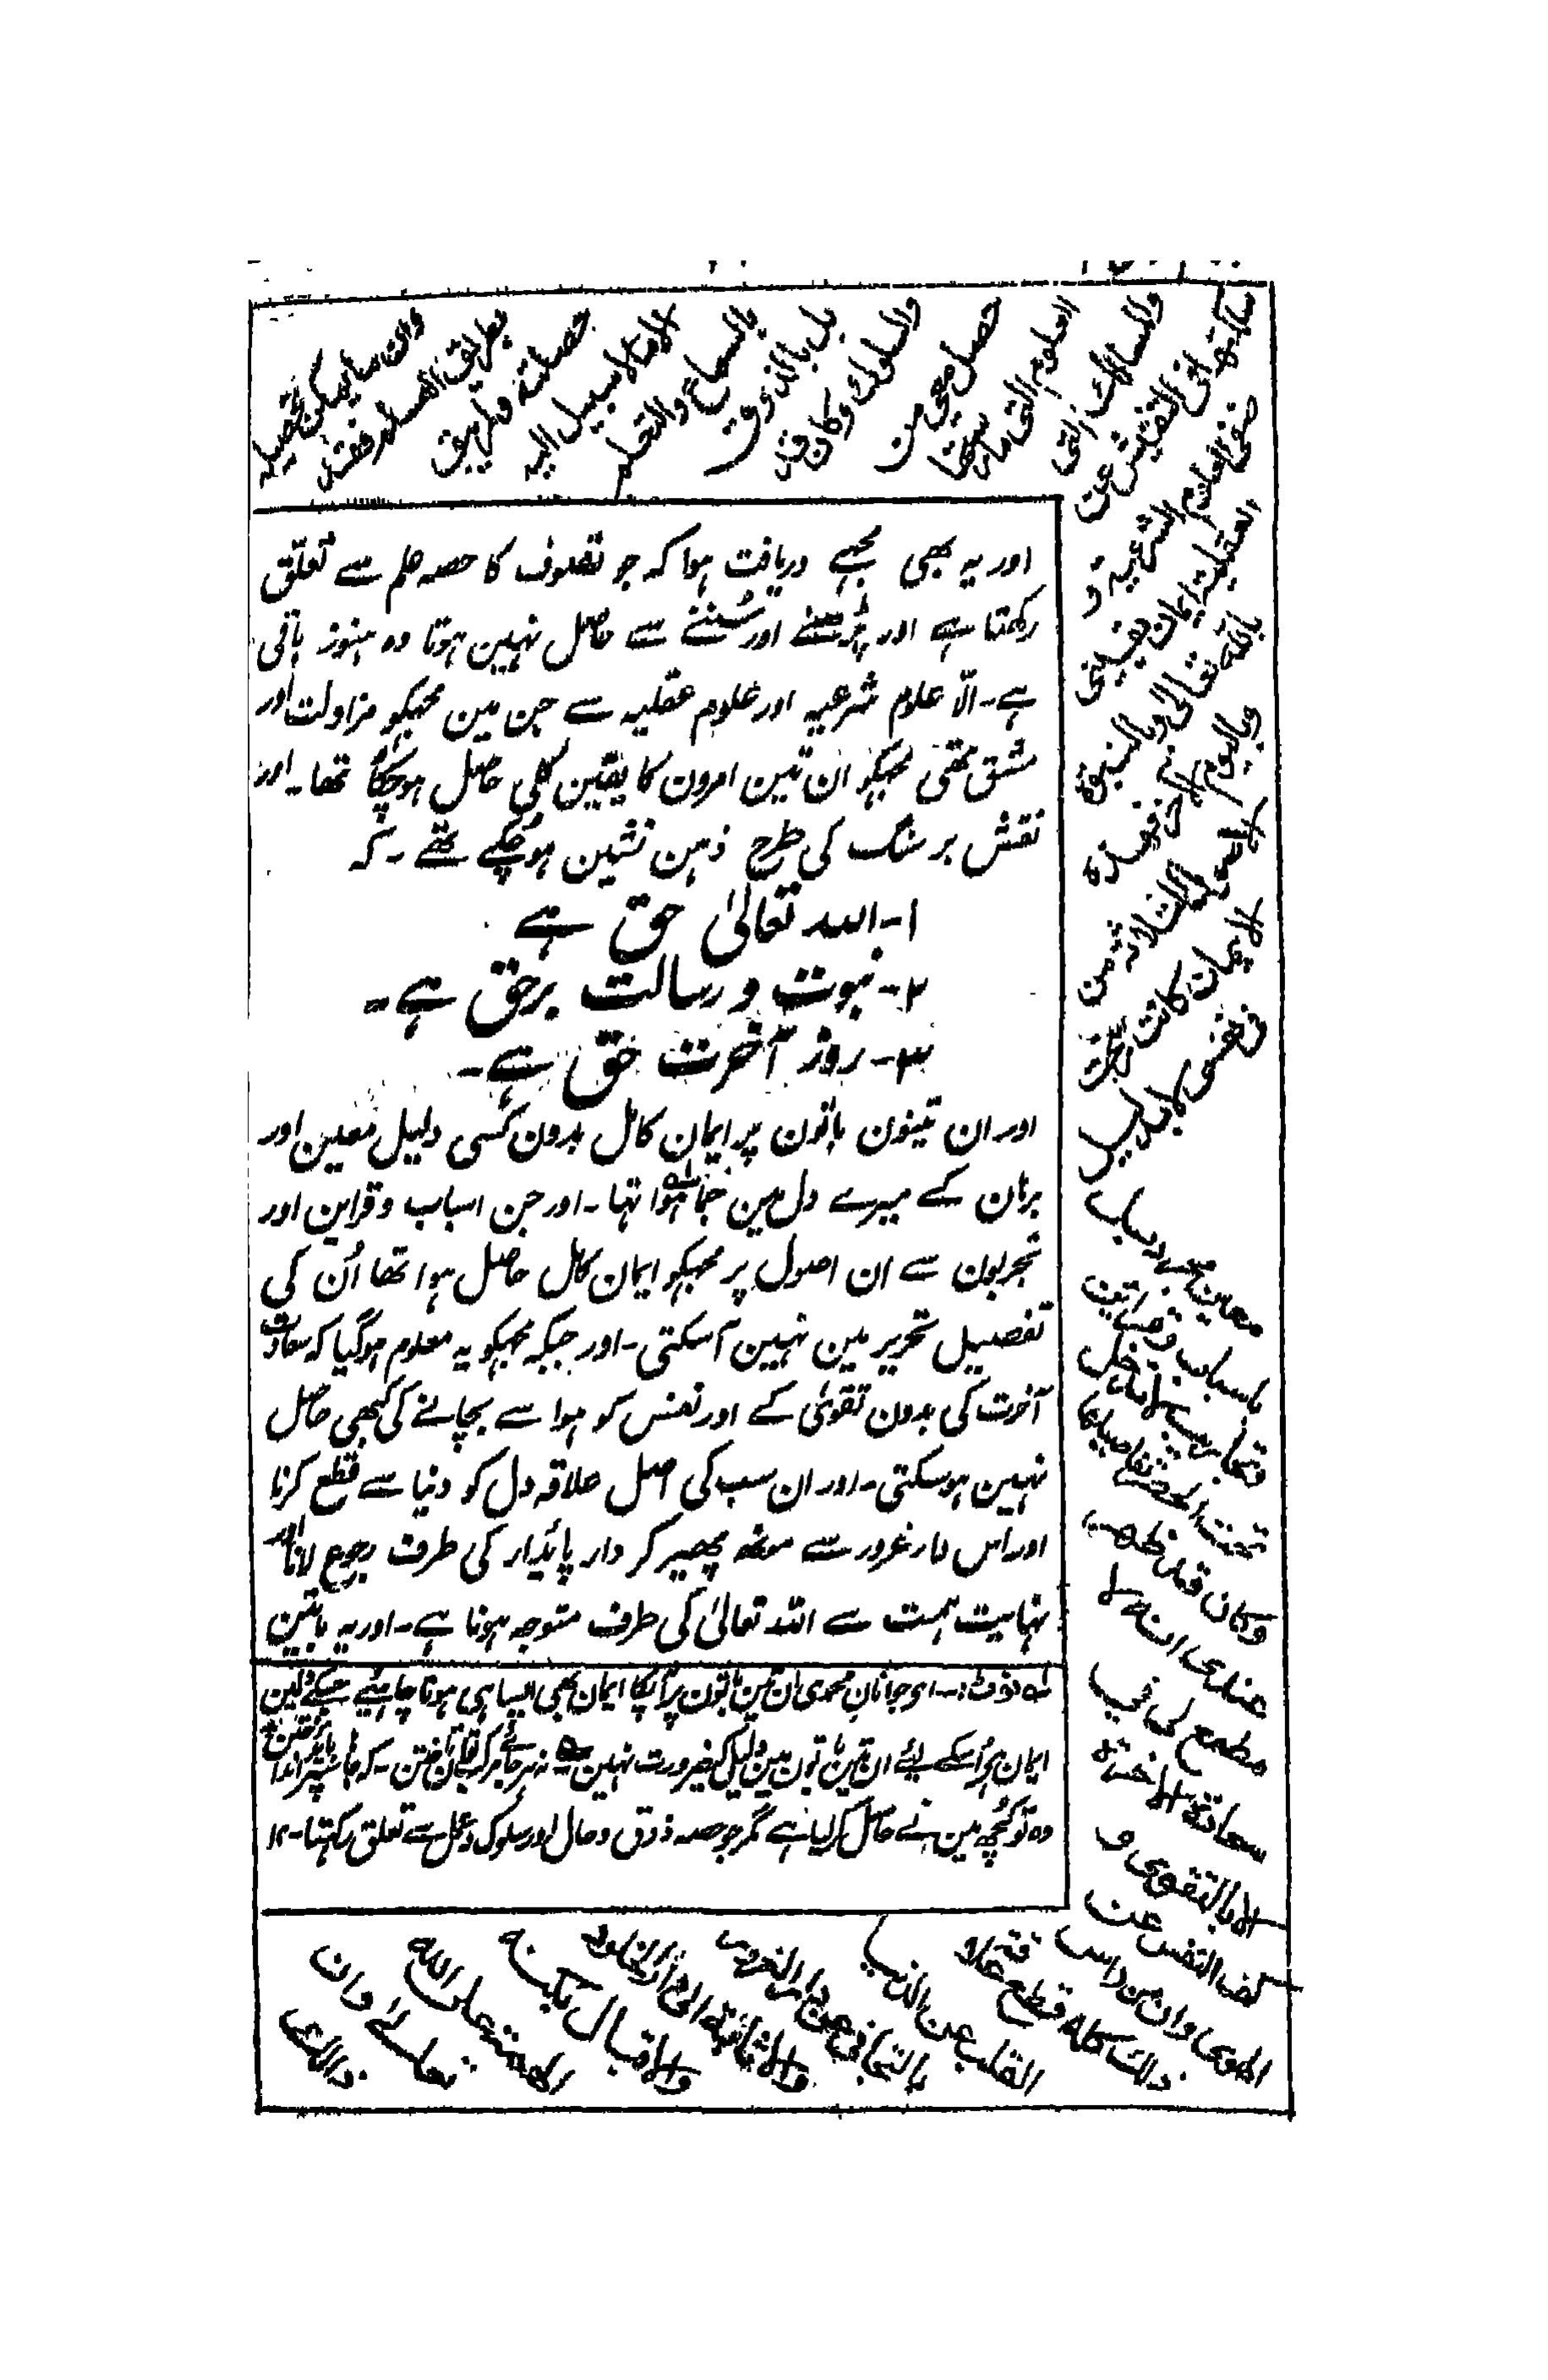 وان ما يمكن تحصيله
بطريق العلم فقد
حصلته ولم يبق
الا ما لا سبيل اليه
بالسماع والتعلم
بل بالذوق
والسلوك وكان قد
حصل معى من
العلوم التى مارستها
والمسالك التى
سلكتها فى التفتيش عن
صنفى العلوم الشرعية و
العقلية ايمان يقينى
بالله تعالى وبالنبوة
وباليوم الاخر فهذه
الاصول الثلاثة من
الايمان كانت رسخت
فى نفسى لا بدليل
معين مجرد بل
باسباب وقرائن
وتجاريب لا تدخل
تحت الحصر تفاصيلها
وكان قد ظهر
عندى انه لا
مطمع لى فى
سعادة الاخرة
الا بالتقوى و
كف النفس عن
الهوى وان من راس
ذلك كله قطع علاقة
القلب عن الدنيا
بالتجافى عن دار الغرور
والانابة الى دار الخلود
والاقبال بكنه
الهمة على الله
تعالى وان
ذالك
اور یہ بھی مجھے دریافت ہوا کہ جو تصوف کا حصہ علم سے تعلق
رکھتا ہے اور پڑھنے اور سُننے سے حاصل نہین ہوتا وہ ہنوز باقی
ہے۔ الّا علوم شرعیہ اور علوم عقلیہ سے جن مین مجہکو مزاولت اور
مشق تھی مجہکو ان تین امرون کا یقین کلی حاصل ہوچکا تھا۔ اور
نقش بر سنگ کی طرح ذہن نشین ہوچکے تھے۔ کہ
۱۔ اللہ تعالیٰ حق ہے
۲۔ نبوت و رسالت برحق ہے۔
۳۔ روز آخرت حق ہے۔
اور ان تینون باتون پر ایمان کامل بدون کسی دلیل معین اور
برہان کے میرے دل مین جما ہوا تہا۔ اور جن اسباب و قراین اور
تجربون سے ان اصول پر مجہکو ایمان کامل حاصل ہوا تھا اُن کی
تفصیل تحریر مین نہین آسکتی۔ اور جبکہ مجہکو یہ معلوم ہوگیا کہ سعادت
آخرت کی بدون تقویٰ کے اور نفس کو ہوا سے بچانے کی کبھی حاصل
نہین ہوسکتی۔ اور ان سب کی اصل علاقہ دل کو دنیا سے قطع کرنا
اور اس دار غرور سے مونھہ پھیر کر دار پائیدار کی طرف رجوع لانا اور
نہایت ہمت سے اللہ تعالیٰ کی طرف متوجہ ہونا ہے۔ اور یہ باتین
لہ نوٹ:۔ ای جانان محمدی ان تین باتون پر آپکا ایمان بھی ایسا ہی ہونا چاہئیے جسکے دلمین
ایمان ہو اُسکے لیئے ان تین باتون مین دلیل کی ضرورت نہین نہ ہر جائے مرکب توان تاختن۔ کہ جاہا سپر باید انداختن
وہ تو کُچھ مین نے حاصل کر لیا ہے مگر جو حصہ ذوق و حال اور سلوک و عمل سے تعلق رکہتا۔ ۱۲